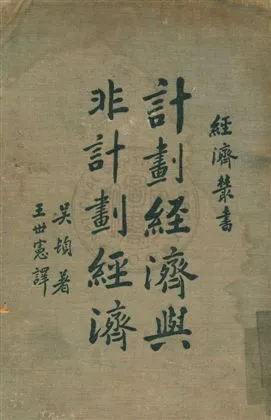 經濟叢書
計劃經濟與
非計劃經濟
吴頔著
王世憲譯